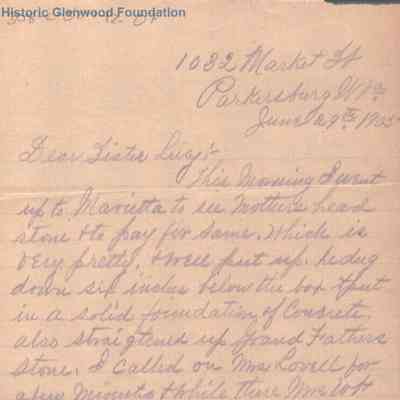 Historic Glenwood Foundation
1032 Market St
Parkersburg W Va
June 29th 1935
Dear Sister Lizy:-
This Morning I went
up to Marietta to see Mothers head
stone & to pay for same. Which is
very pretty, & well put up. he dug
down six inches below the box & put
in a solid foundation of Concrete.
also straightened up Grand Fathers
stone. I called on Mrs Lovell for
a few Minutes & while there Mrs